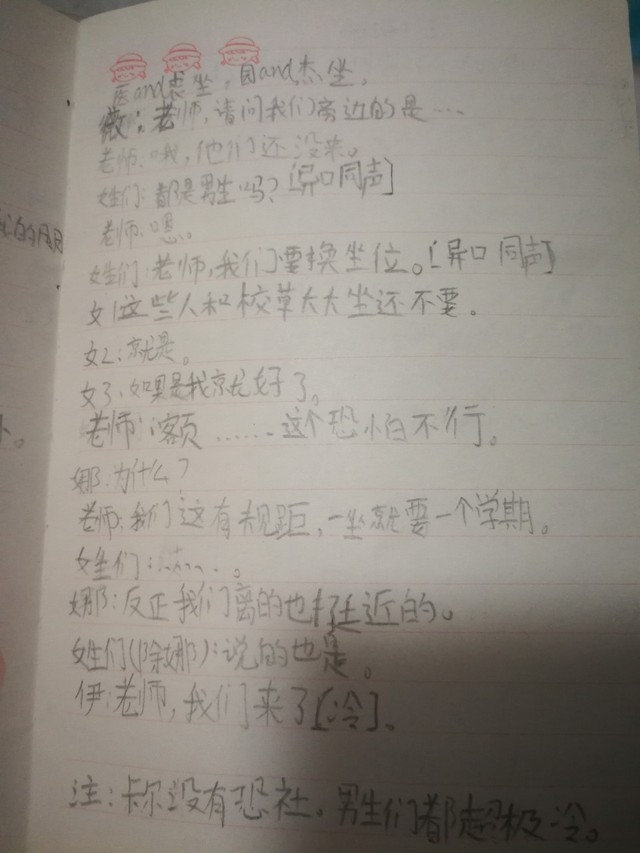 and杰坐,因and杰坐,
微:老师,请问我们旁边的是....
老师:哦,他们还没来。
姓们:都是男生吗?[异口同声]
老师:嗯。
姓们:老师,我们要换坐位。[异口同声]
女1这些人和校草大大坐还不要。
女2:就是。
女3:如果是我就好了。
老师:额.......这个恐怕不行。
娜:为什么?
老师:我们这有规距,一坐就要一个学期。
女生们:......。
娜:反正我们离的也挺近的。
女生们(除娜):说的也是。
伊:老师,我们来了[冷]。
注:卡尔没有恐社。男生们都超极冷。
小。